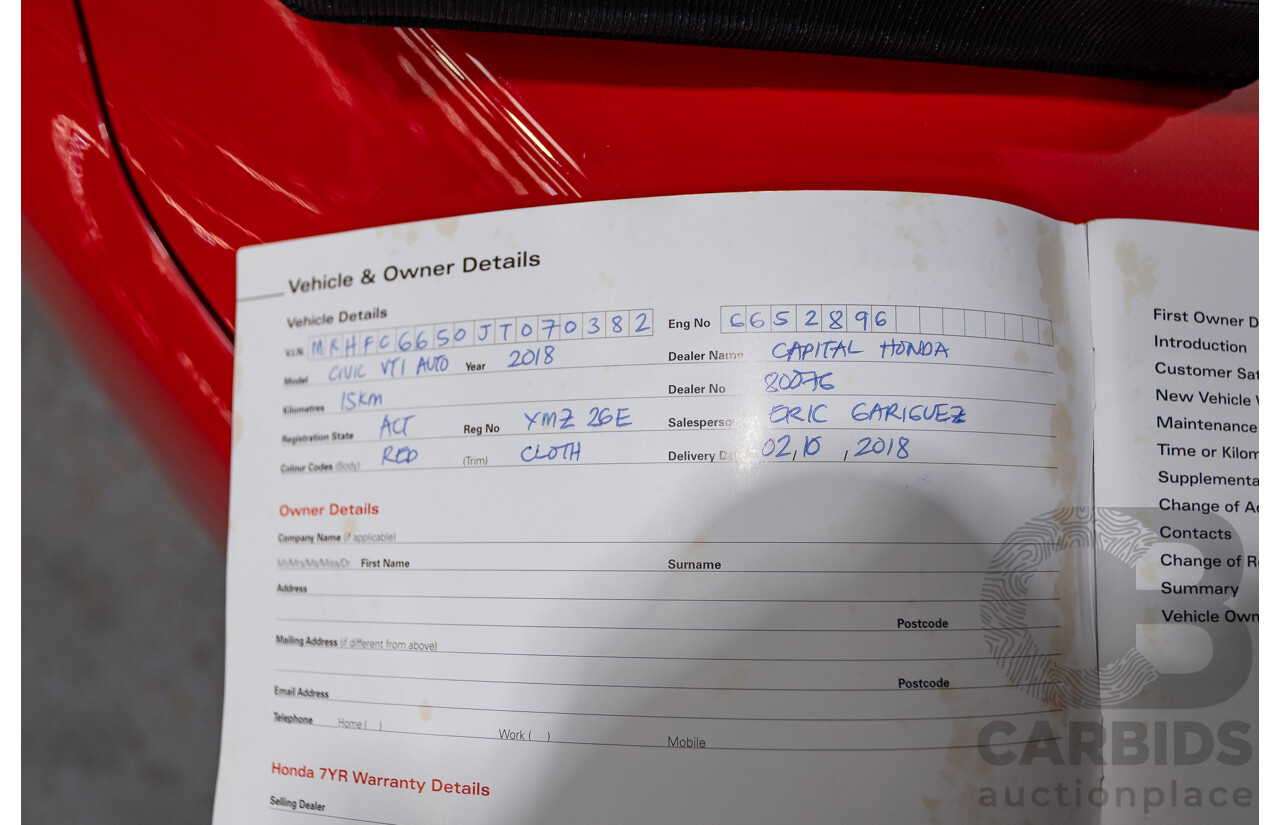 Vehicle & Owner Details
Vehicle Details
V.I.N MRHFC6650JT070382
Eng No 6652896
Model CIVIC VTI AUTO Year 2018
Dealer Name CAPITAL HONDA
Kilometres 15km
Dealer No 80076
Registration State ACT Reg No YMZ 26E
Salesperson ERIC GARIGUEZ
Colour Codes (Body) RED (Trim) CLOTH
Delivery Date 02, 10, 2018
Owner Details
Company Name (if applicable)
Mr/Mrs/Ms/Miss/Dr First Name Surname
Address
Postcode
Mailing Address (if different from above)
Postcode
Email Address
Telephone Home ( ) Work ( ) Mobile
Honda 7YR Warranty Details
Selling Dealer
First Owner D
Introduction
Customer Sat
New Vehicle
Maintenance
Time or Kilom
Supplementa
Change of Ad
Contacts
Change of R
Summary
Vehicle Own
CB
CARBIDS
auctionplace